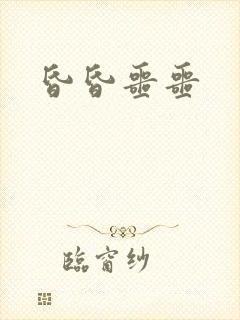 昏昏噩噩
臨窗纱